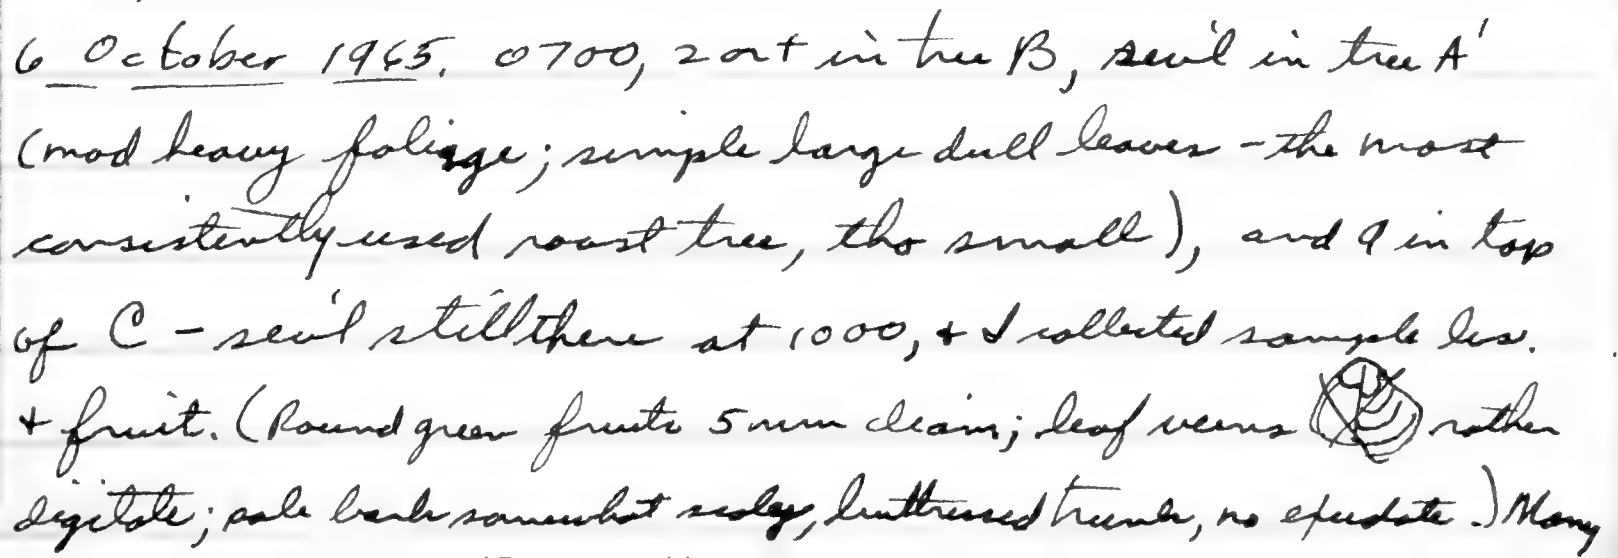 6 October 1965. 0700, 2 or + in tree B, sev'l in tree A'
(mod heavy foliage; simple large dull leaves - the most
consistently used roost tree, tho small), and 9 in top
of C - sev'l still there at 1000, + I collected sample lvs.
+ fruit. (Round green fruits 5 mm diam; leaf veins rather
digitate; pale bark somewhat scaley, buttressed trunk, no exudate.) Many